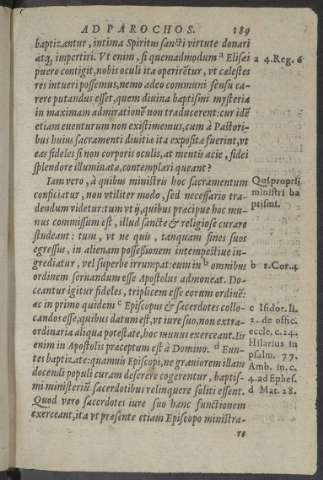 AD PAROCHOS. 189
baptizantur, intima Spiritus sancti virtute donari
atq, impertiri. Vt enim, si quemadmodum a Elisei
puero contigit, nobis oculi ita operirẽtur, vt cælestes
res intueri possemus, nemo adeo communi sensu ca-
rere putandus esset, quem diuina baptismi mysteria
in maximam admirationẽ non traducerent: cur idẽ
etiam euenturum non existimemus, cum à Pastori-
bus huius sacramenti diuitiæ ita expositæ fuerint, vt
eas fideles si non corporis oculis, at mentis acie, fidei
splendore illuminata, contemplari queant?
Iam vero, à quibus ministris hoc sacramentum
conficiatur, non vtiliter modo, sed necessario tra-
dendum videtur: tum vt ij, quibus præcipue hoc mu-
nus commissum est, illud sanctè & religiose curare
studeant: tum, vt ne quis, tanquam fines suos
egressus, in alienam possessionem intempestiue in-
grediatur, vel superbe irrumpat: eum in b omnibus
ordinem seruandum esse Apostolus admoneat. Do-
ceantur igitur fideles, triplicem esse eorum ordinẽ:
ac in primo quidem c Episcopos & sacerdotes collo-
candos esse, quibus datum est, vt iure suo, non extra-
ordinaria aliqua potestate, hoc munus exerceant. Iis
enim in Apostolis præceptum est à Domino. d Eun-
tes baptizate: quamuis Episcopi, ne grauiorem illam
docendi populi curam deserere cogerentur, baptis-
mi ministeriũ sacerdotibus relinquere soliti essent.
Quod vero sacerdotes iure suo hanc functionem
exerceant, ita vt præsente etiam Episcopo ministra-
re
a 4. Reg. 6
Qui proprii
ministri ba
ptismi.
b 1. Cor. 4
c Isidor. li.
2. de offic.
eccle. c. 24.
Hilarius in
psalm. 77.
Amb. in c.
4. ad Ephes.
d Mat. 28.